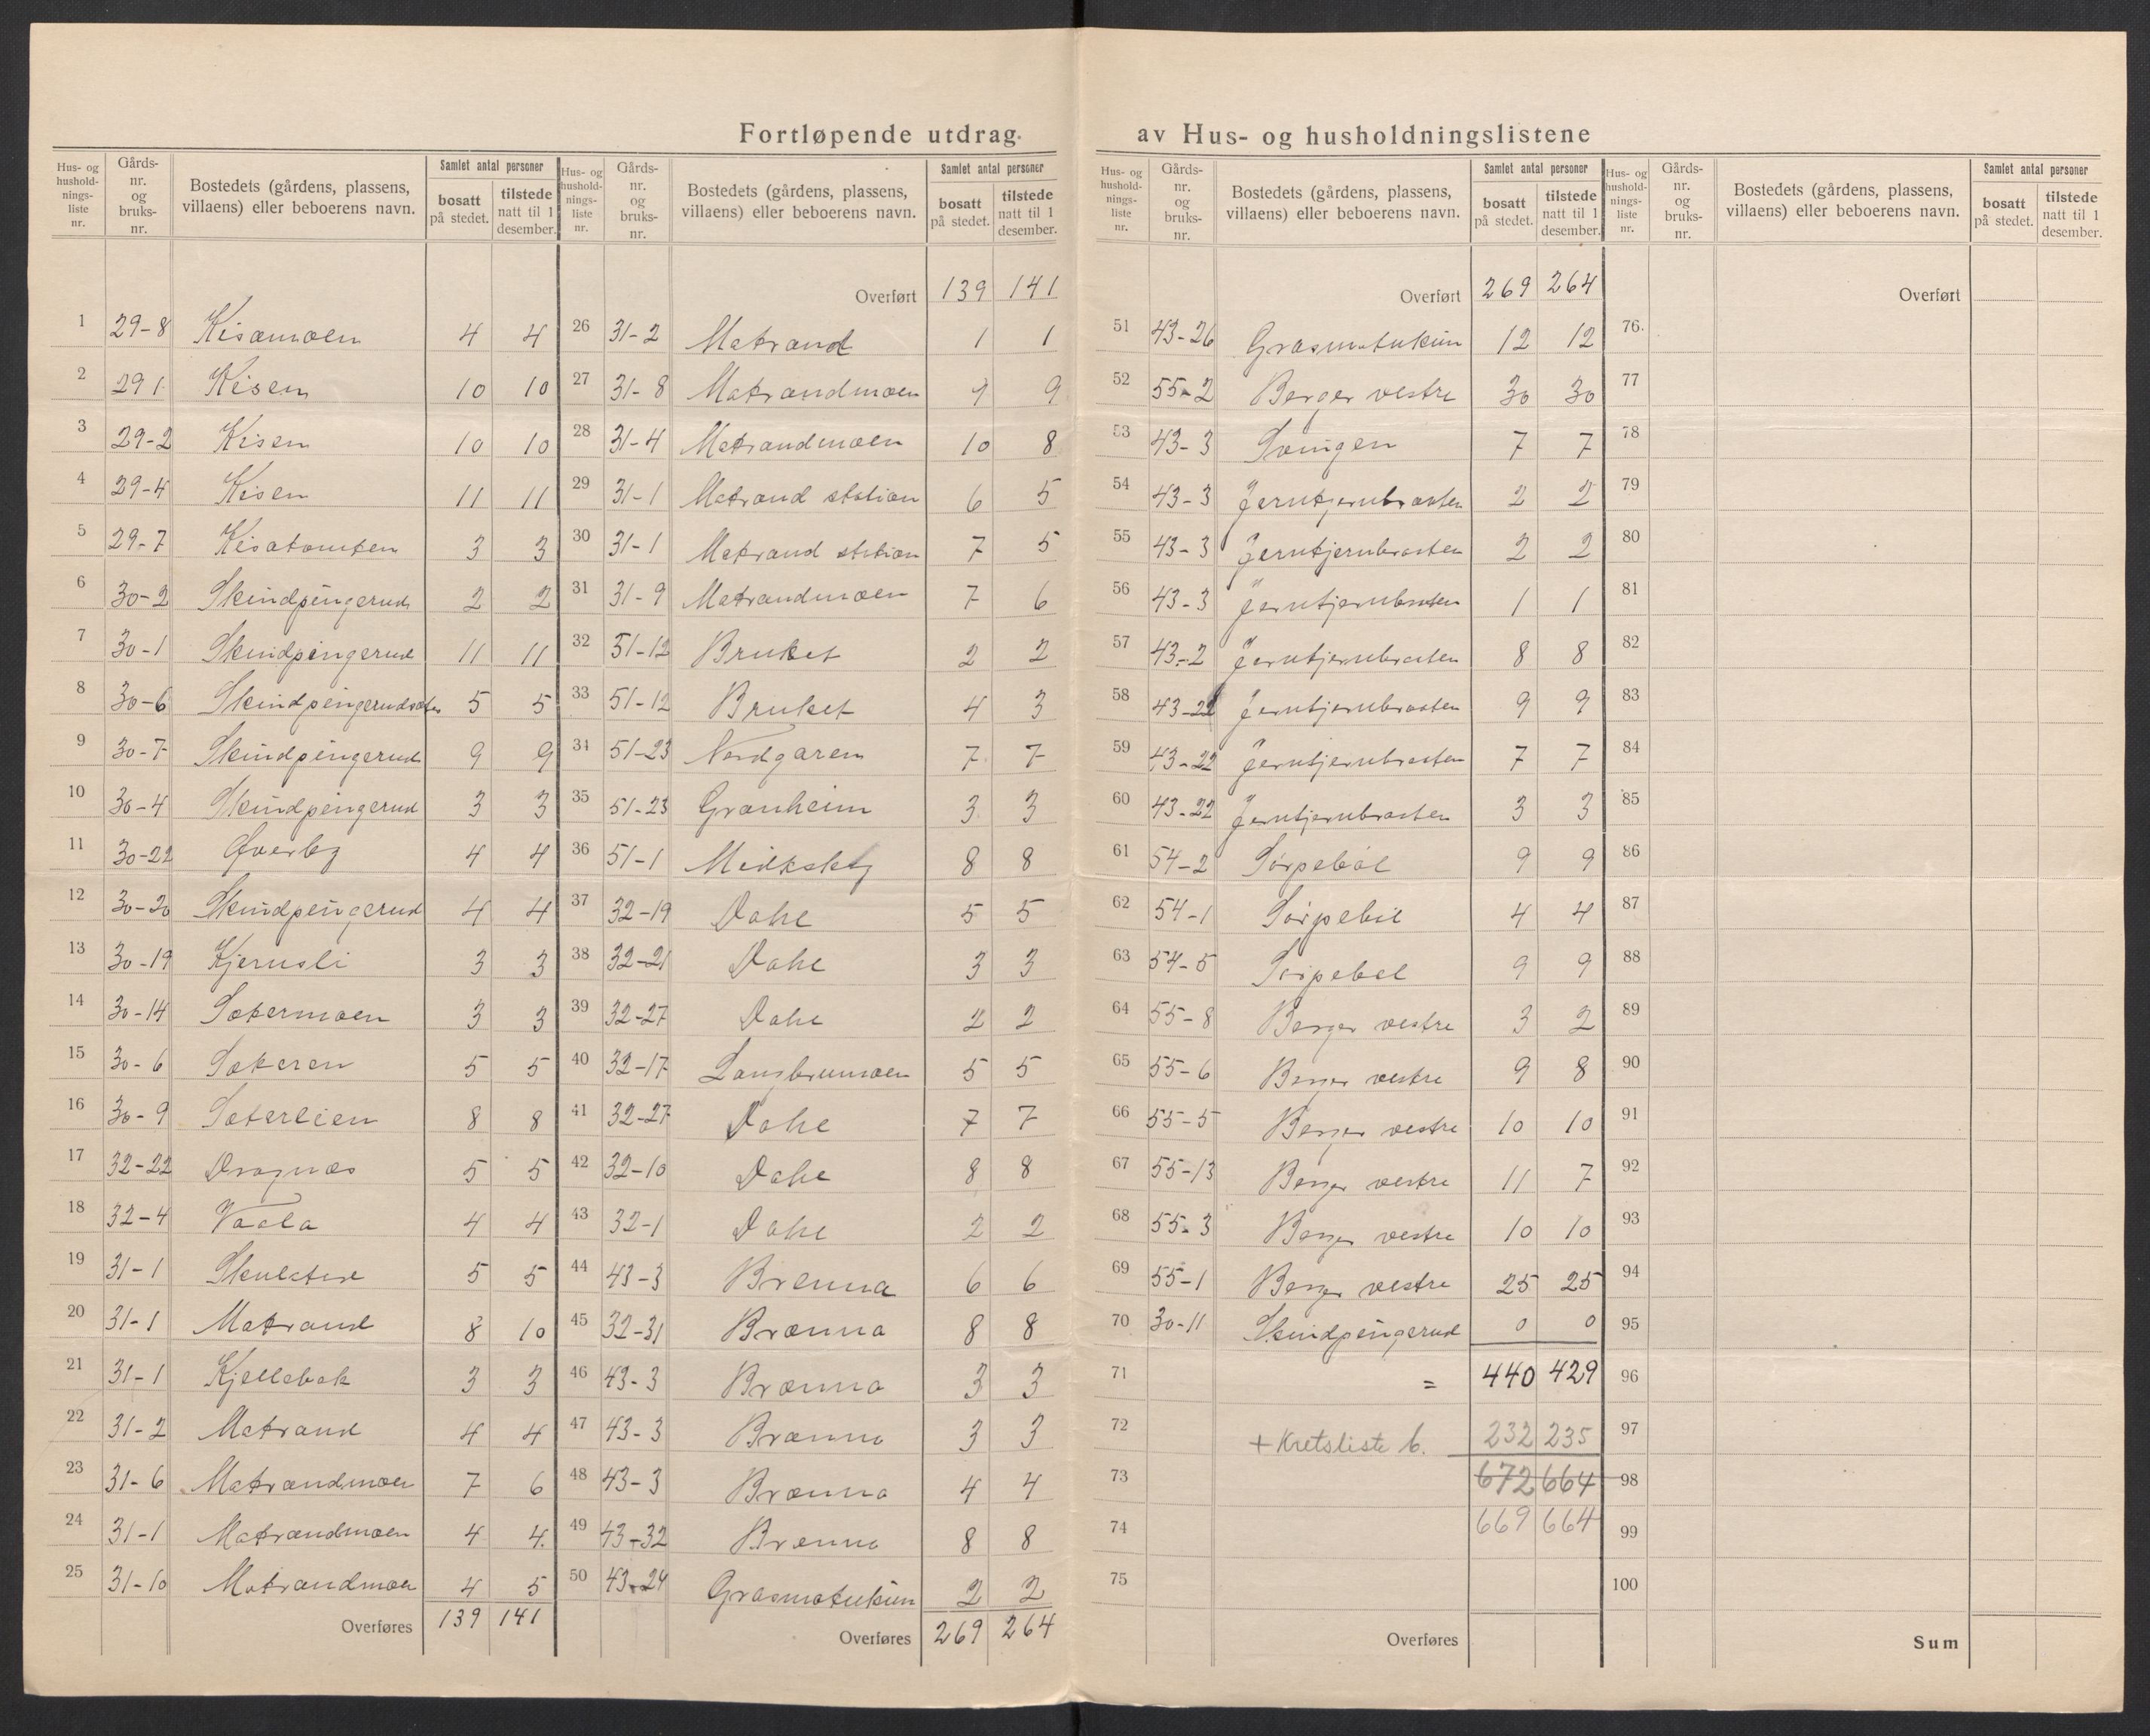 Fortløpende utdrag av Hus- og husholdningslistene
Hus- og husholdningsliste nr. | Gårdsnr. og bruksnr. | Bostedets (gårdens, plassens, villaens) eller beboerens navn. | Samlet antal personer bosatt på stedet. | tilstede natt til 1 desember.
1 29-8 Kisamoen 4 4
2 29 1 Kisen 10 10
3 29-2 Kisen 10 10
4 29-4 Kisen 11 11
5 29-7 Kisatomten 3 3
6 30-2 Skindpengerud 2 2
7 30-1 Skindpengerud 11 11
8 30-6 5 5
9 30-7 Skindpengerud 9 9
10 30-4 Skindpengerud 3 3
11 30-22 Øverby 4 4
12 30-20 Skindpengerud 4 4
13 30-19 Kjernsli 3 3
14 30-14 Sætermoen 3 3
15 30-6 Sæteren 5 5
16 30-9 Sæterlien 8 8
17 32-22 Dragnæs 5 5
18 32-4 Vaala 4 4
19 31-1 5 5
20 31-1 Matrand 8 10
21 31-1 Kjellebæk 3 3
22 31-2 Matrand 4 4
23 31-6 Matrandmoen 7 6
24 31-1 Matrandmoen 4 4.
25 31-10 Matrandmoen 4 5
Overføres 139 141
Hus- og husholdningsliste nr. | Gårdsnr. og bruksnr. | Bostedets (gårdens, plassens, villaens) eller beboerens navn. | Samlet antal personer bosatt på stedet. | tilstede natt til 1 desember.
Overført 139 141
26 31-2 Matrand 1 1
27 31-8 Matrandmoen 9 9
28 31-4 Matrandmoen 10 8
29 31-1 Matrand station 6 5
30 31-1 Matrand station 7 5
31 31-9 Matrandmoen 7 6
32 51-12 Bruket 2 2
33 51-12 Bruket 4 3
34 51-23 Nordgaren 7 7
35 51-23 Granheim 3 3
36 51-1 Midtskog 8 8
37 32-19 Dahl 5 5
38 32-21 Dahl 3 3
39 32-27 Dahl 2 2
40 32-17 Langbrumoen 5 5
41 32-27 Dahl 7 7
42 32-10 Dahl 8 8
43 32-1 Dahl 2 2
44 43-3 Brenna 6 6
45 32-31 Brænna 8 8
46 43-3 Brænna 3 3
47 43-3 Brænna 3 3
48 43-3 Brænna 4 4
49 43-32 Brenna 8 8
50 43-24 2 2
Overføres 269 264
Hus- og husholdningsliste nr. | Gårdsnr. og bruksnr. | Bostedets (gårdens, plassens, villaens) eller beboerens navn. | Samlet antal personer bosatt på stedet. | tilstede natt til 1 desember.
Overført 269 264
51 43-26 12 12
52 55-2 Berger vestre 30 30
53 43-3 Svingen 7 7
54 43-3 Jerntjernbraaten 2 2
55 43-3 Jerntjernbraaten 2 2
56 43-3 Jerntjernbraaten 1 1
57 43-2 Jerntjernbraaten 8 8
58 43-22 Jerntjernbraaten 9 9
59 43-22 Jerntjernbraaten 7 7
60 43-22 Jerntjernbraaten 3 3
61 54-2 Sørpebøl 9 9
62 54-1 Sørpebøl 4 4
63 54-5 Sørpebøl 9 9
64 55-8 Berger vestre 3 2
65 55-6 Berger vestre 9 8
66 55-5 Berger vestre 10 10
67 55-13 Berger vestre 11 7
68 55-3 Berger vestre 10 10
69 55-1 Berger vestre 25 25
70 30-11 Skindpengerud 0 0
71 = 440 429
72 + Kretsliste b. 232 235
73 672 664
74 669 664
75
Overføres
Hus- og husholdningsliste nr. | Gårdsnr. og bruksnr. | Bostedets (gårdens, plassens, villaens) eller beboerens navn. | Samlet antal personer bosatt på stedet. | tilstede natt til 1 desember.
Overført
76.
77
78
79
80
81
82
83
84
85
86
87
88
89
90
91
92
93
94
95
96
97
98
99
100
Sum